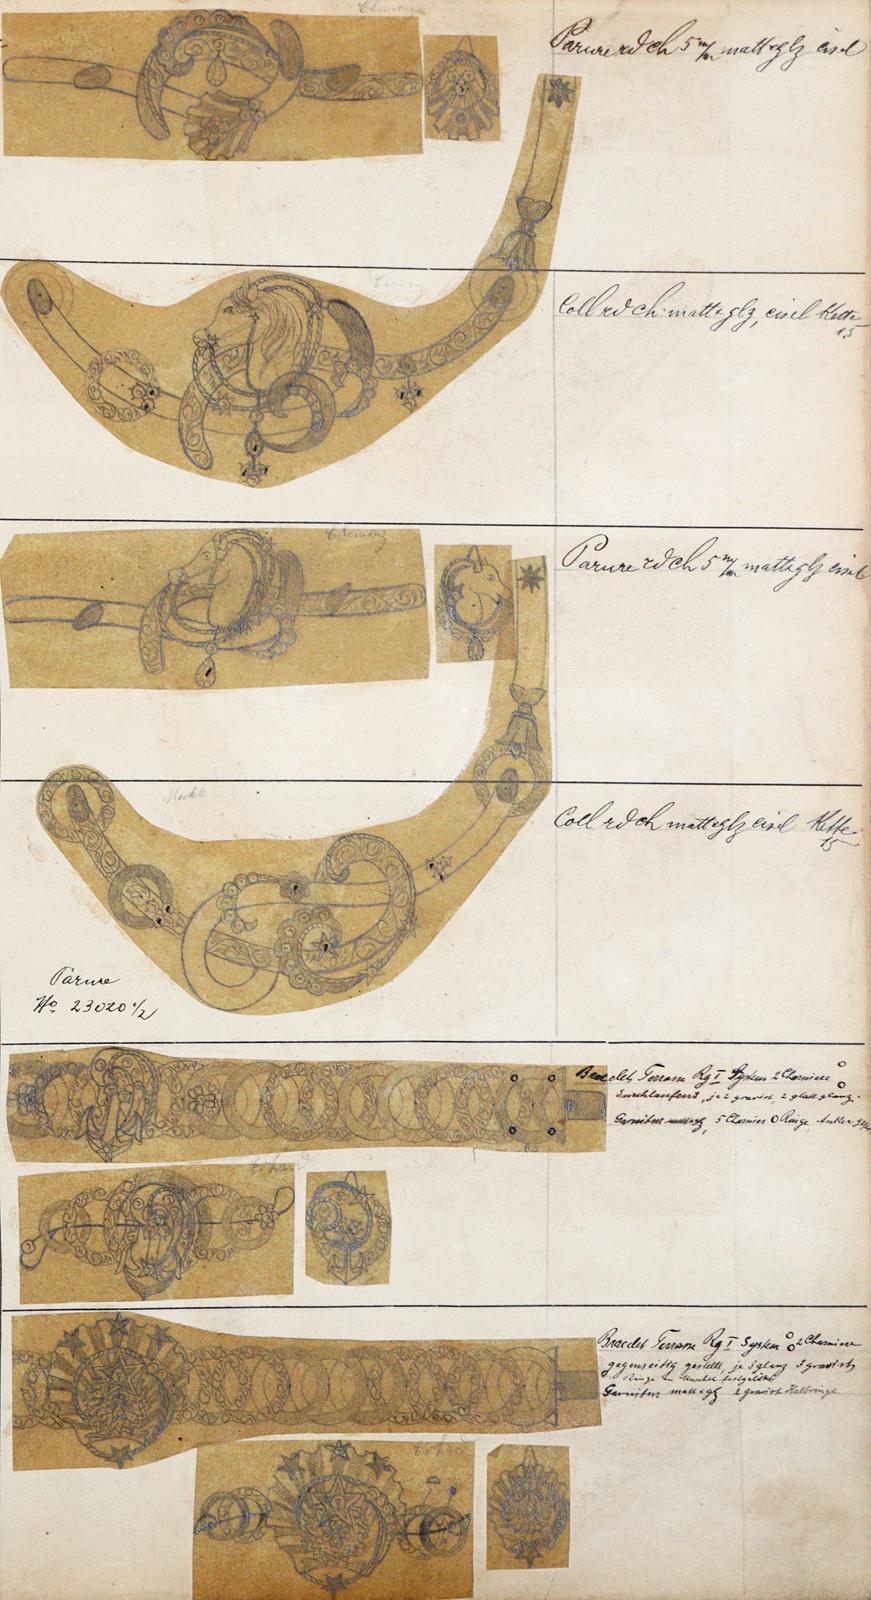 Parure rdch 5 m/m matt&glz cisel
Coll rdch matt&glz, cisel Kette
15
Parure rdch 5 m/m matt&glz cisel
Coll rdch matt&glz cisel Kette
15
Parure
No. 23020 1/2
Bracelet Terrasse Rg I System 2 Charniere
durchlaufend, je 2 graviert, 2 glatt glanz.
Garnitur 5 Charnier Ringe Anker
Bracelet Terrasse Rg I System 2 Charniere
gegenseitig gestellt, je 3 glanz 3 graviert
Ringe Muschel
Garnitur matt&glz 2 graviert Halbringe